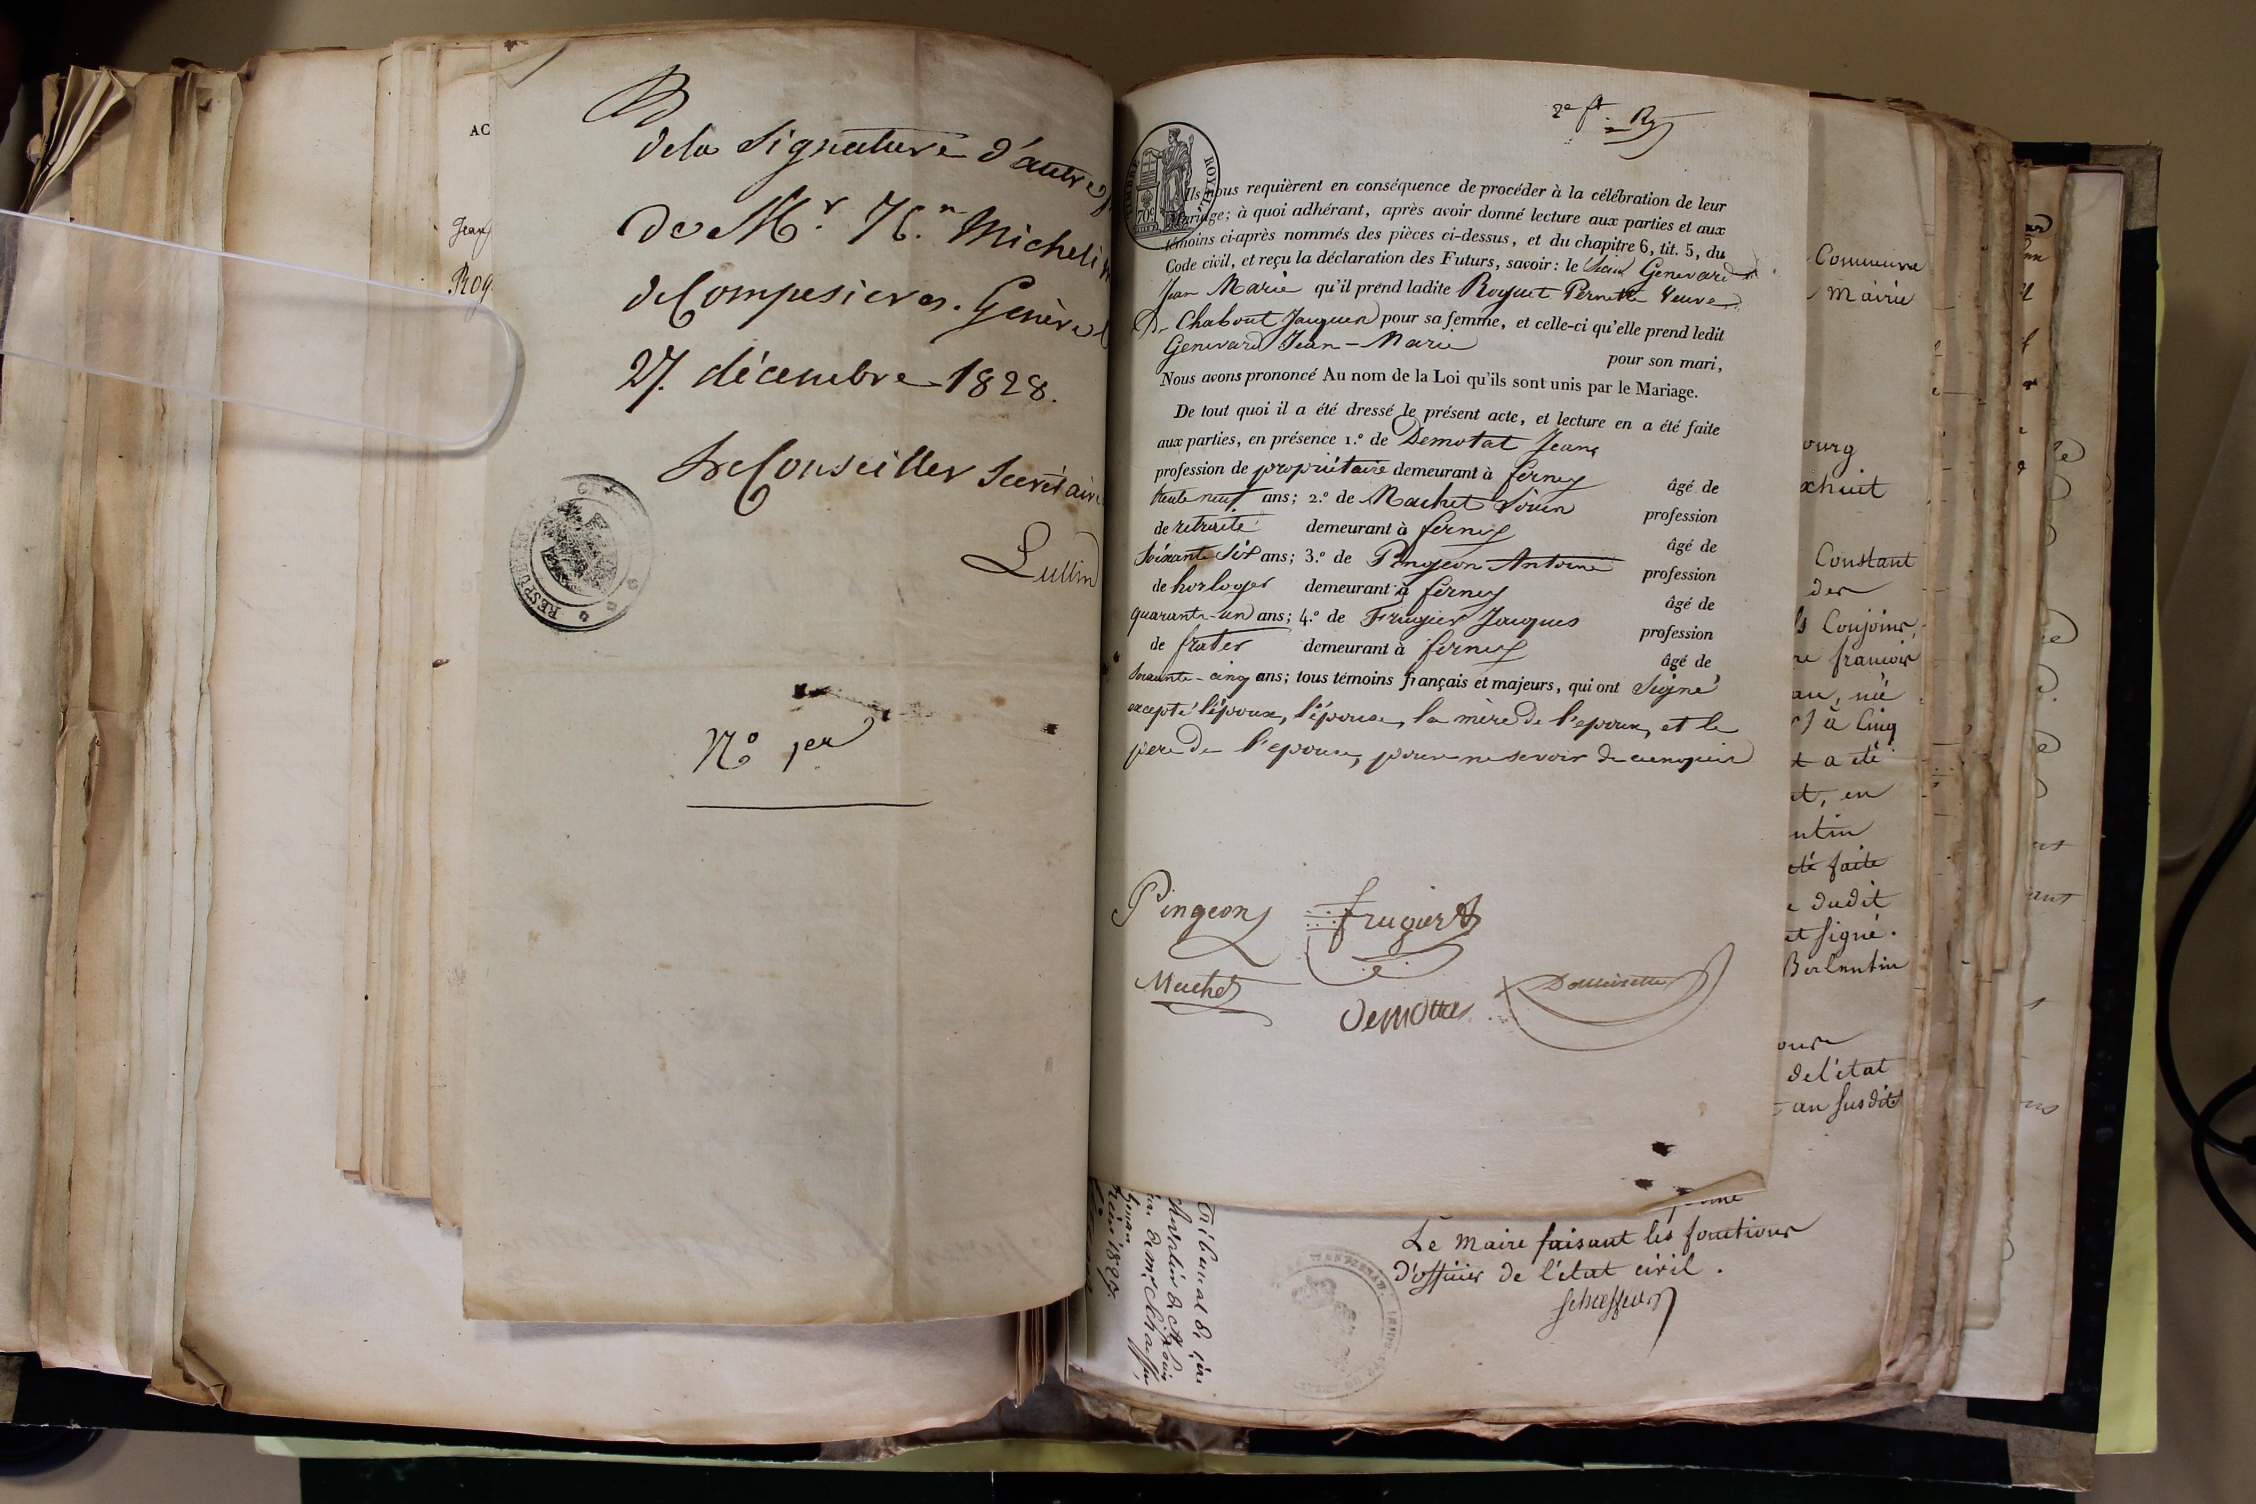 AC
Jean
Rog
de la signature d'autre
de Mr. Hn. Micheli
de Compesieres. Genève l
27. décembre 1828.
Le Conseiller Secrétaire
Lullin
RESPU
No 1er
2e ft.
TIMBRE ROYAL
70c
Ils nous requièrent en conséquence de procéder à la célébration de leur
Mariage; à quoi adhérant, après avoir donné lecture aux parties et aux
témoins ci-après nommés des pièces ci-dessus, et du chapitre 6, tit. 5, du
Code civil, et reçu la déclaration des Futurs, savoir: le Genevard
Jean Marie qu'il prend ladite Roguet Pernette Veuve
De Chabout Jacques pour sa femme, et celle-ci qu'elle prend ledit
Genevard Jean-Marie
pour son mari,
Nous avons prononcé Au nom de la Loi qu'ils sont unis par le Mariage.
De tout quoi il a été dressé le présent acte, et lecture en a été faite
aux parties, en présence 1.º de Demotat Jean
profession de propriétaire demeurant à ferney âgé de
trente neuf ans; 2.º de Machet profession
de retraité demeurant à ferney âgé de
Soixante Six ans; 3.º de Pingeon Antoine profession
de horloger demeurant à ferney âgé de
quarante-un ans; 4.º de Frugier Jacques profession
de frater demeurant à ferney âgé de
Soixante-cinq ans; tous témoins français et majeurs, qui ont Signé
excepté l'époux, l'épouse, la mère de l'epoux, et le
pere de l'epouse, pour ne savoir de ce requis
Pingeon frugier
Machet
Demottas
Commune
Mairie
ourg
xhuit
Constant
der
ls Conjoins,
re francois
au, né
à Cinq
t a été
et, en
ntin
été faite
e dudit
et signé.
Berlentin
oure
de l'état
an susdit
Le Maire faisant les fonctions
d'officier de l'état civil.
Tribunal de
1829.